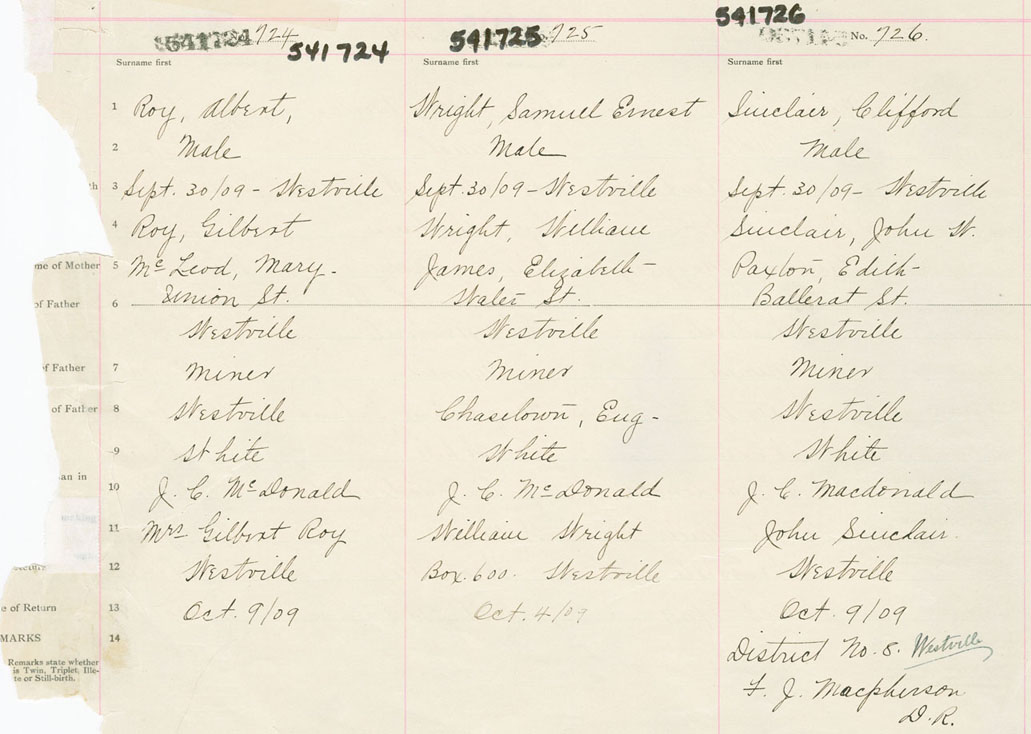 541724 724 541724
541725 725
541726
No. 726.
Surname first
Surname first
Surname first
1 Roy, Albert, Wright, Samuel Ernest Sinclair, Clifford
2 Male Male Male
th 3 Sept. 30/09 - Westville Sept. 30/09 - Westville Sept. 30/09 - Westville
4 Roy, Gilbert Wright, William Sinclair, John W.
me of Mother 5 McLeod, Mary - James, Elizabeth - Paxton, Edith -
of Father 6 Union St. Wales St. Ballerat St.
Westville Westville Westville
of Father 7 Miner Miner Miner
of Father 8 Westville Chaselown, Eug - Westville
9 White White White
an in 10 J. C. McDonald J. C. McDonald J. C. Macdonald
11 Mrs Gilbert Roy William Wright John Sinclair.
12 Westville Box. 600. Westville Westville
e of Return 13 Oct. 9/09 Oct. 4/09 Oct. 9/09
MARKS 14
District No. 8. Westville
Remarks state whether
is Twin, Triplet, Ille-
te or Still-birth.
F. J. Macpherson
D. R.